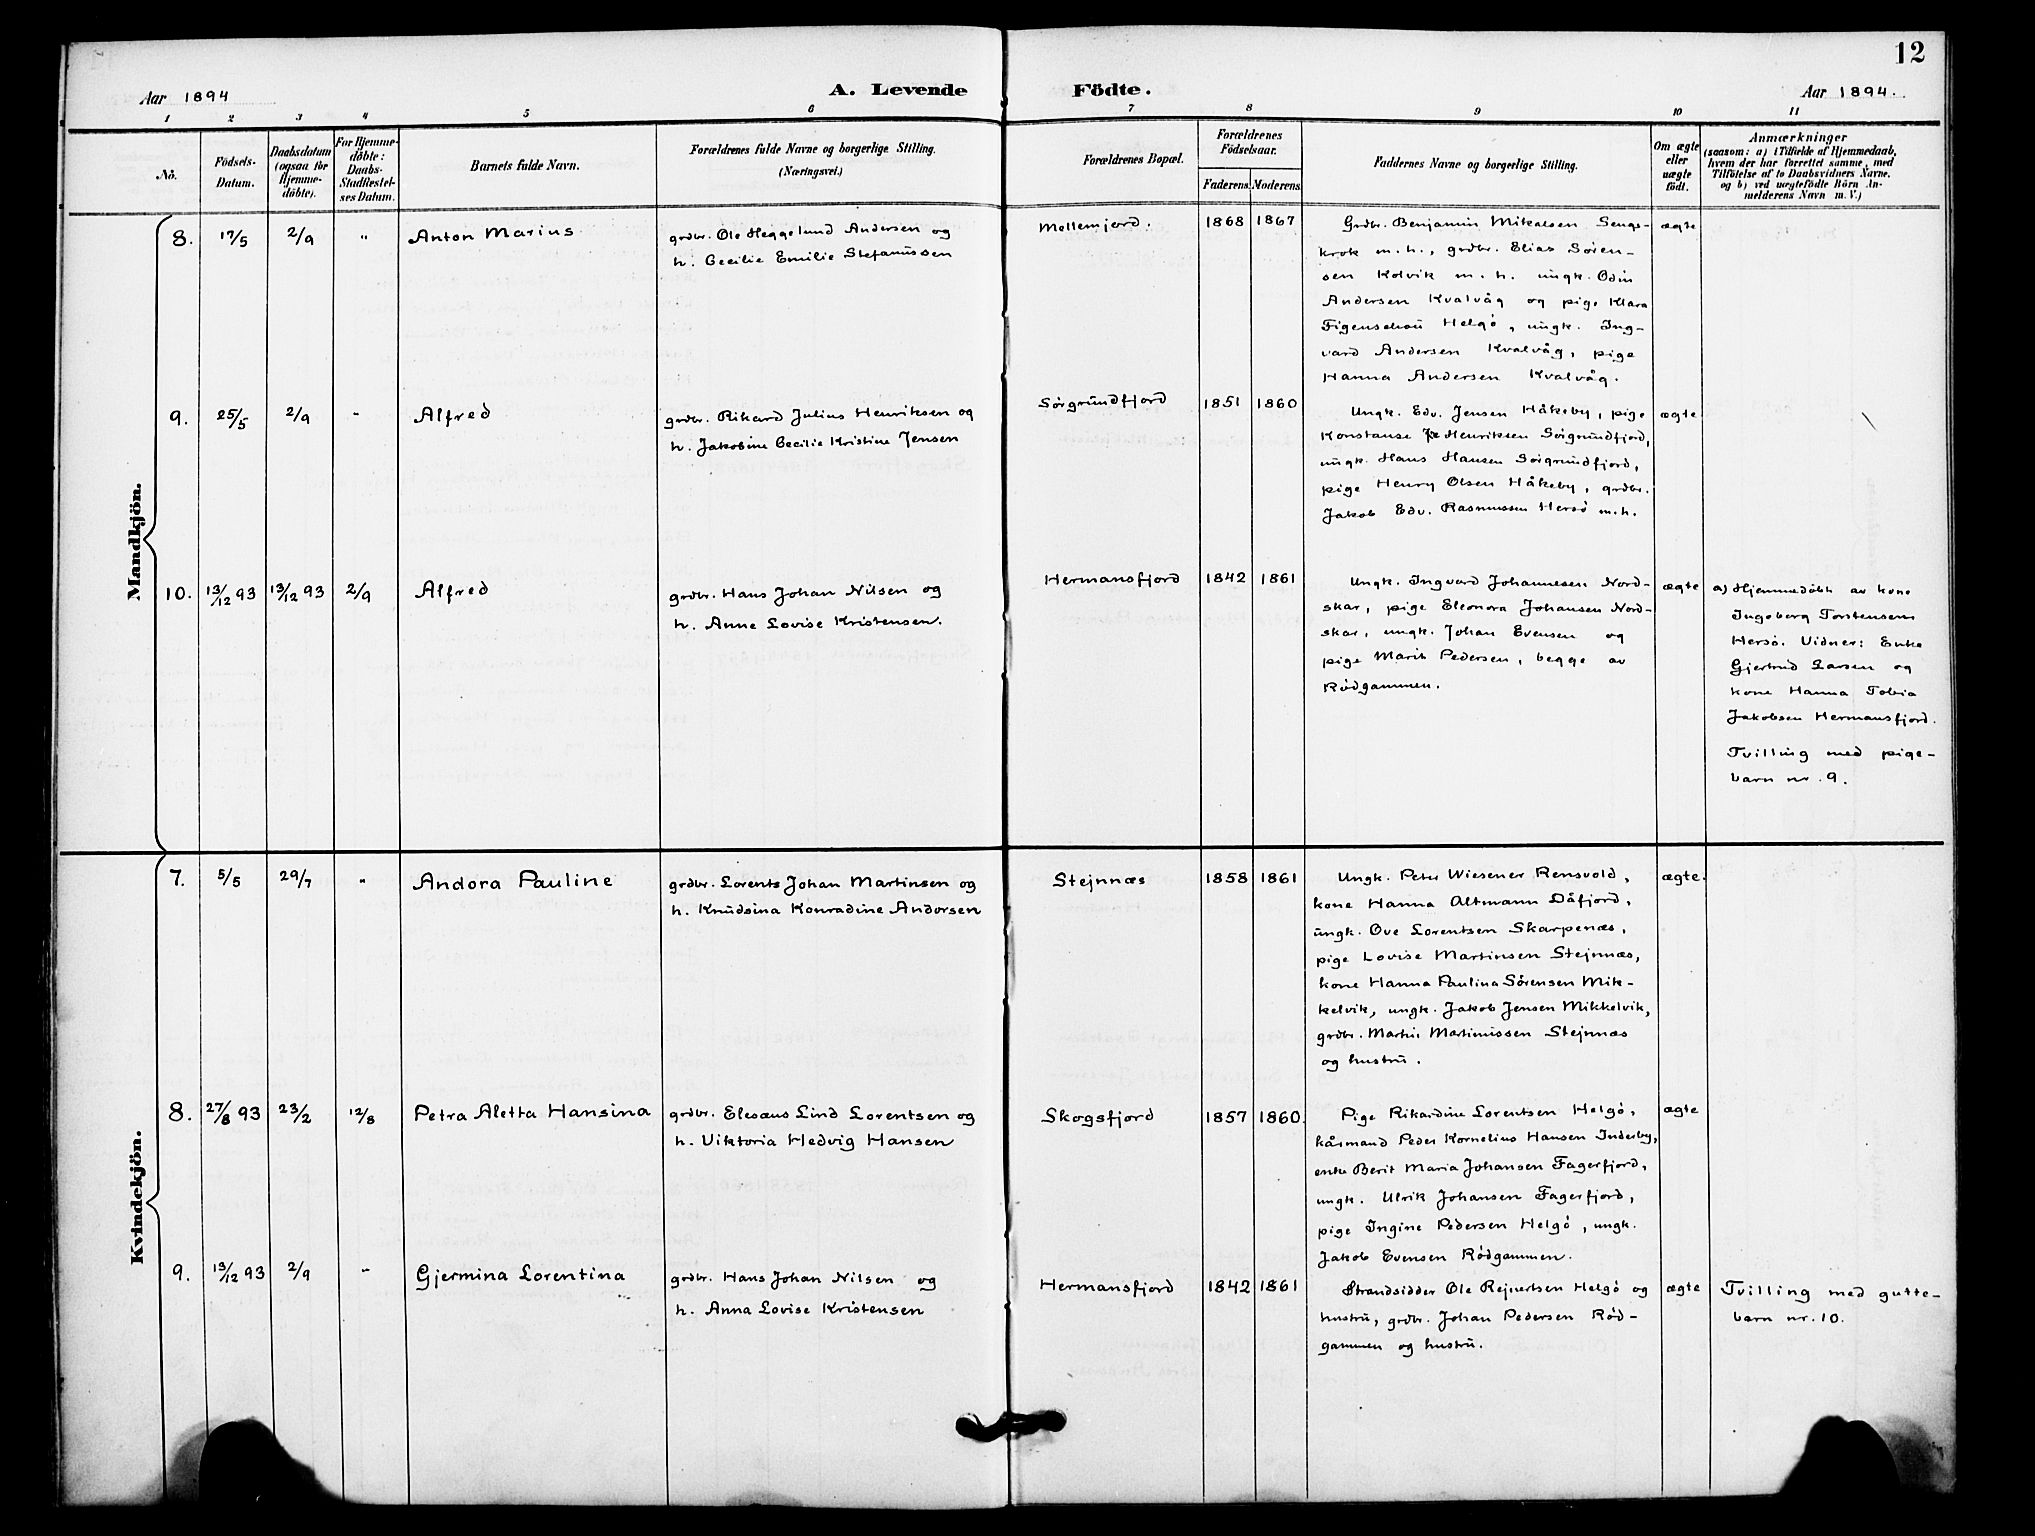 12
Aar 1894 A. Levende Födte. Aar 1894.
1 2 3 4 5 6 7 8 9 10 11
No. Födsels-Datum. Daabsdatum (ogsaa for Hjemme-döbte). For Hjemme-döbte: Daabs-Stadfæstel-ses Datum. Barnets fulde Navn. Forældrenes fulde Navne og borgerlige Stilling. (Næringsvei.) Forældrenes Bopæl. Forældrenes Födselsaar. Faderens. Moderens. Faddernes Navne og borgerlige Stilling. Om ægte eller uægte födt. Anmærkninger
(saasom: a) i Tilfælde af Hjemmedaab,
hvem der har forrettet samme, med
Tilföielse af to Daabsvidners Navne.
og b) ved uægtefödte Börn An-
melderens Navn m.V.)
Mandkjön.
8. 17/5 2/9 " Anton Marius
grdbr. Ole Heggelund Andersen og
h. Cecilie Emilie Stefanussen
Mellemjord. 1868 1867
Grdbr. Benjamin Mikalsen Sengs-
krok m.h., grdbr. Elias Sören-
sen Kolvik m.h. ungk. Odin
Andersen Kvalvåg og pige Klara
Figenschou Helgö, ungk. Ing-
vard Andersen Kvalvåg, pige
Hanna Andersen Kvalvåg.
ægte
9. 25/5 2/9 " Alfred
grdbr. Rikard Julius Henriksen og
h. Jakobine Cecilie Kristine Jensen
Sörgrundfjord 1851 1860
Ungk. Edv. Jensen Håkeby, pige
Konstanse Henriksen Sörgrundfjord,
ungk. Hans Hansen Sörgrundfjord,
pige Henry Olsen Håkeby, grdbr.
Jakob Edv. Rasmussen Hersö m.h.
ægte
10. 13/12 93 13/12 93 2/9 Alfred
grdbr. Hans Johan Nilsen og
h. Anne Lovise Kristensen.
Hermansfjord 1842 1861
Ungk. Ingvard Johannesen Nord-
skar, pige Eleonora Johansen Nord-
skar, ungk. Johan Evensen og
pige Marit Pedersen, begge av
Rödgammen.
ægte
a) Hjemmedöbt av kone
Ingeborg Torstensen
Hersö. Vidner: Enke
Gjertrud Larsen og
kone Hanna Tobia
Jakobsen Hermansfjord.
Tvilling med pige-
barn nr. 9.
Kvindekjön.
7. 5/5 29/7 " Andora Pauline
grdbr. Lorents Johan Martinsen og
h. Knudsina Konradine Andorsen
Stejnnæs 1858 1861
Ungk. Peter Wiesener Rensvold,
kone Hanna Altmann Dåfjord,
ungk. Ove Lorentsen Skarpenæs,
pige Lovise Martinsen Stejnnæs,
kone Hanna Paulina Sörensen Mik-
kelvik, ungk. Jakob Jensen Mikkelvik,
grdbr. Martin Martinussen Stejnnæs
og hustru.
ægte.
8. 27/8 93 23/2 12/8 Petra Aletta Hansina
grdbr. Elesæus Lind Lorentsen og
h. Viktoria Hedvig Hansen
Skogsfjord 1857 1860.
Pige Rikardine Lorentsen Helgö,
kårmand Peder Kornelius Hansen Inderby,
enke Berit Maria Johansen Fagerfjord,
ungk. Ulrik Johansen Fagerfjord,
pige Ingine Pedersen Helgö, ungk.
Jakob Evensen Rödgammen.
ægte
9. 13/12 93 2/9 " Gjermina Lorentina
grdbr. Hans Johan Nilsen og
h. Anna Lovise Kristensen
Hermansfjord 1842 1861
Strandsidder Ole Rejnertsen Helgö og
hustru, grdbr. Johan Pedersen Röd-
gammen og hustru.
ægte
Tvilling med gutte-
barn nr. 10.